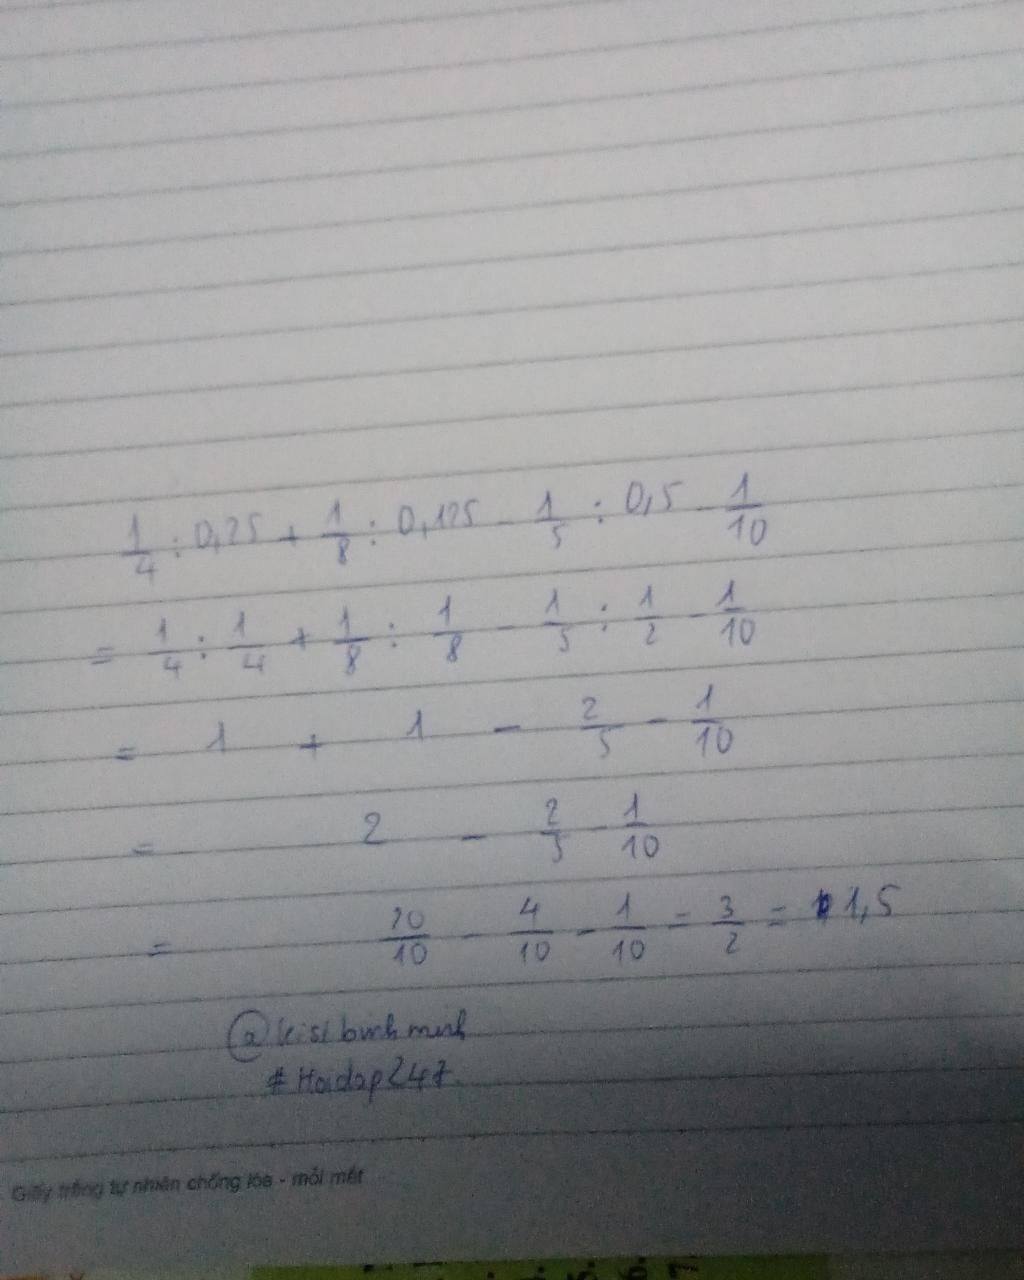 1/4 : 0,25 + 1/8 : 0,125 - 1/5 : 0,5 - 1/10
= 1/4 : 1/4 + 1/8 : 1/8 - 1/5 : 1/2 - 1/10
= 1 + 1 - 2/5 - 1/10
= 2 - 2/5 - 1/10
= 20/10 - 4/10 - 1/10 = 3/2 = 1,5
@kisibinhminh
#Hoidap247
Giấy trắng tự nhiên chống lóa - mỏi mắt